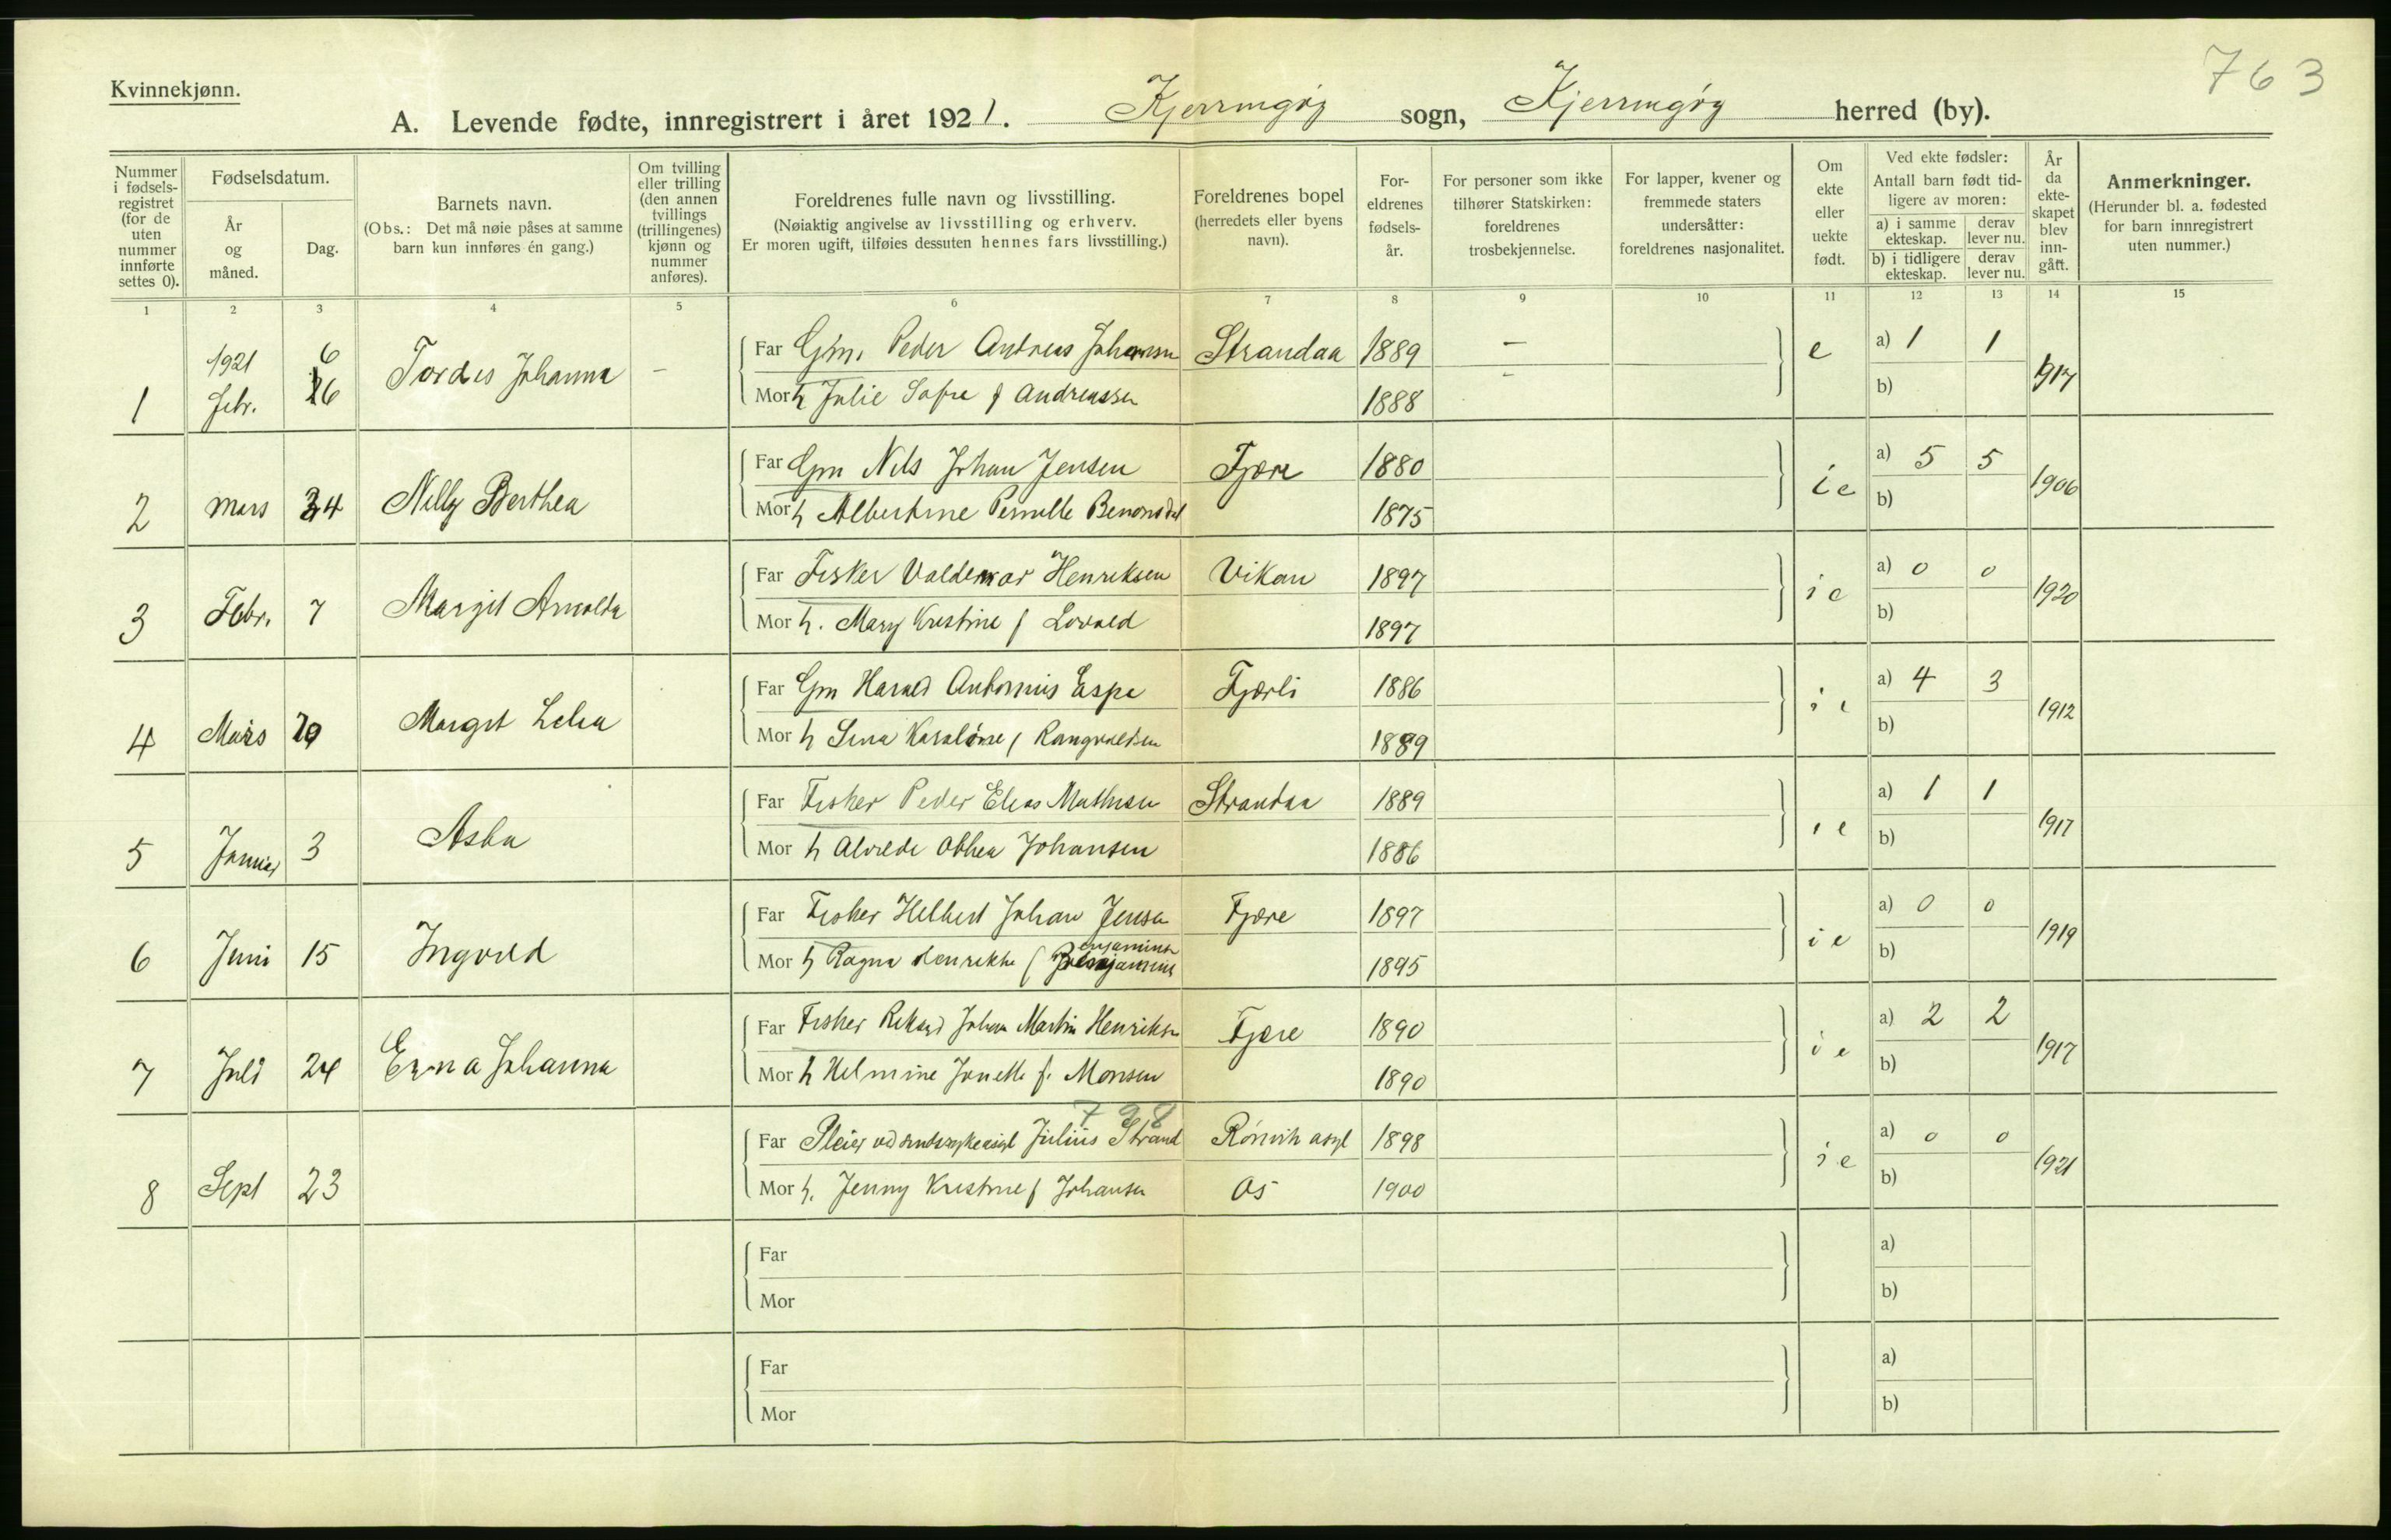 763
Kvinnekjønn.
A. Levende fødte, innregistrert i året 1921. Kjerringøy sogn, Kjerringøy herred (by).
Nummer i fødselsregistret (for de uten nummer innførte settes 0).
Fødselsdatum.
År og måned.
Dag.
Barnets navn.
(Obs.: Det må nøie påses at samme barn kun innføres én gang.)
Om tvilling eller trilling (den annen tvillings (trillingenes) kjønn og nummer anføres).
Foreldrenes fulle navn og livsstilling.
(Nøiaktig angivelse av livsstilling og erhverv.
Er moren ugift, tilføies dessuten hennes fars livsstilling.)
Foreldrenes bopel
(herredets eller byens navn).
Foreldrenes fødselsår.
For personer som ikke tilhører Statskirken: foreldrenes trosbekjennelse.
For lapper, kvener og fremmede staters undersåtter: foreldrenes nasjonalitet.
Om ekte eller uekte født.
Ved ekte fødsler:
Antall barn født tidligere av moren:
a) i samme ekteskap. derav lever nu.
b) i tidligere ekteskap. derav lever nu.
År da ekteskapet blev inngått.
Anmerkninger.
(Herunder bl. a. fødested for barn innregistrert uten nummer.)
1 2 3 4 5 6 7 8 9 10 11 12 13 14 15
1 1921 Febr. 6 Tordis Johanna - Far Gm. Peder Andreas Johansen Strandaa 1889 - e a) 1 1 1917
Mor h Julie Sofie f Andreassen 1888 - b)
2 Mars 24 Nelly Berthea Far Gm Nils Johan Jensen Fjære 1880 ie a) 5 5 1906
Mor h Albertine Pernille Benonsdat 1875 b)
3 Febr. 7 Margit Arnolda Far Fisker Valdemar Henriksen Vikan 1897 ie a) 0 0 1920
Mor h. Mary Kristine f Lovold 1897 b)
4 Mars Margit Far Gm Harald Antonius Espe Fjærli 1886 ie a) 4 3 1912
Mor h Lina f Rangvaldsen 1889 b)
5 Januar 3 Asta Far Fisker Peder Elias Mathisen Strandaa 1889 ie a) 1 1 1917
Mor h Alvilde Othea Johansen 1886 b)
6 Juni 15 Ingvild Far Fisker Helbert Johan Jensen Fjære 1897 ie a) 0 0 1919
Mor h Ragna Henrikke f Benjaminsen 1895 b)
7 Juli 24 Erna Johanna Far Fisker Rikard Johan Martin Henriksen Fjære 1890 ie a) 2 2 1917
Mor h Helmine Jonette f. Monsen 1890 b)
798
8 Sept 23 Far Pleier ved sindssykeasyl Julius Strand Rønvik asyl 1898 ie a) 0 0 1921
Mor h. Jenny Kristine f Johansen Os 1900 b)
Far a)
Mor b)
Far a)
Mor b)